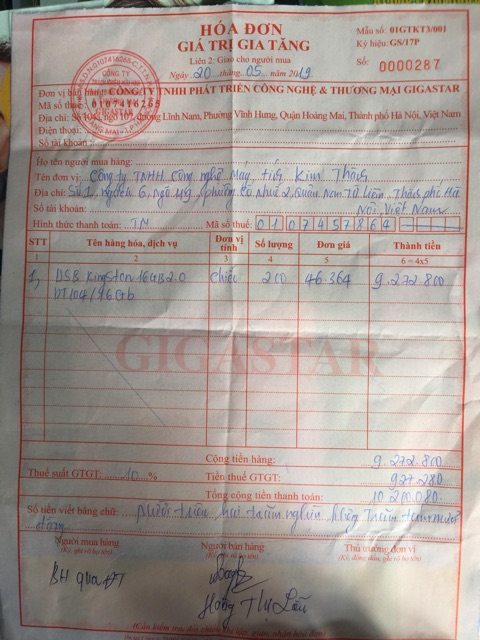 HÓA ĐƠN
GIÁ TRỊ GIA TĂNG
Liên 2: Giao cho người mua
Ngày 20 tháng 05 năm 2019
Mẫu số: 01GTKT3/001
Ký hiệu: GS/17P
Số: 0000287
Đơn vị bán hàng: CÔNG TY TNHH PHÁT TRIỂN CÔNG NGHỆ & THƯƠNG MẠI GIGASTAR
Mã số thuế: 0107416265
Địa chỉ: Số ngõ 107, đường Lĩnh Nam, Phường Vĩnh Hưng, Quận Hoàng Mai, Thành phố Hà Nội, Việt Nam
Điện thoại:
Số tài khoản
Họ tên người mua hàng:
Tên đơn vị: Công ty TNHH Công nghệ Máy tính Kim Thăng
Địa chỉ: Số 1, ngách 6, ngõ 49, phường 2, Quận Nam Từ Liêm, Thành phố Hà
Nội, Việt Nam
Số tài khoản:
Hình thức thanh toán: TM Mã số thuế: 0107457864
STT Tên hàng hóa, dịch vụ Đơn vị tính Số lượng Đơn giá Thành tiền
1 2 3 4 5 6 = 4x5
1, USB Kingston 16GB 2.0 chiếc 200 46.364 9.272.800
DT104/16Gb
GIGASTAR
Cộng tiền hàng: 9.272.800
Thuế suất GTGT: 10 % Tiền thuế GTGT: 927.280
Tổng cộng tiền thanh toán: 10.200.080
Số tiền viết bằng chữ: Mười triệu hai trăm nghìn không trăm tám mươi
đồng
Người mua hàng Người bán hàng Thủ trưởng đơn vị
(Ký, ghi rõ họ tên) (Ký, ghi rõ họ tên) (Ký, đóng dấu, ghi rõ họ tên)
BH qua ĐT
Hoàng Thị